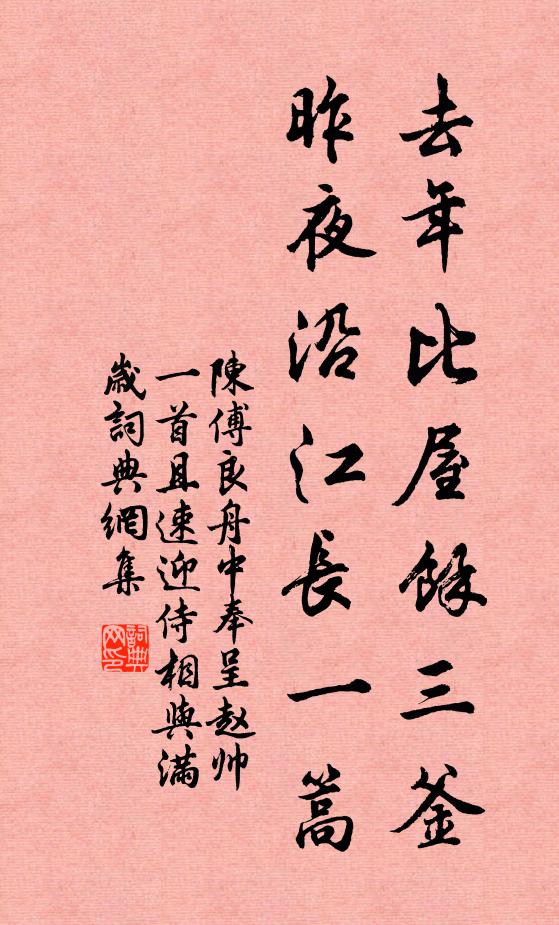 去年比屋餘三釜
昨夜沿江長一篙
陳傅良舟中奉呈赵帅
一首且速迎侍相與滿
歲詞典網集
詞典
网印